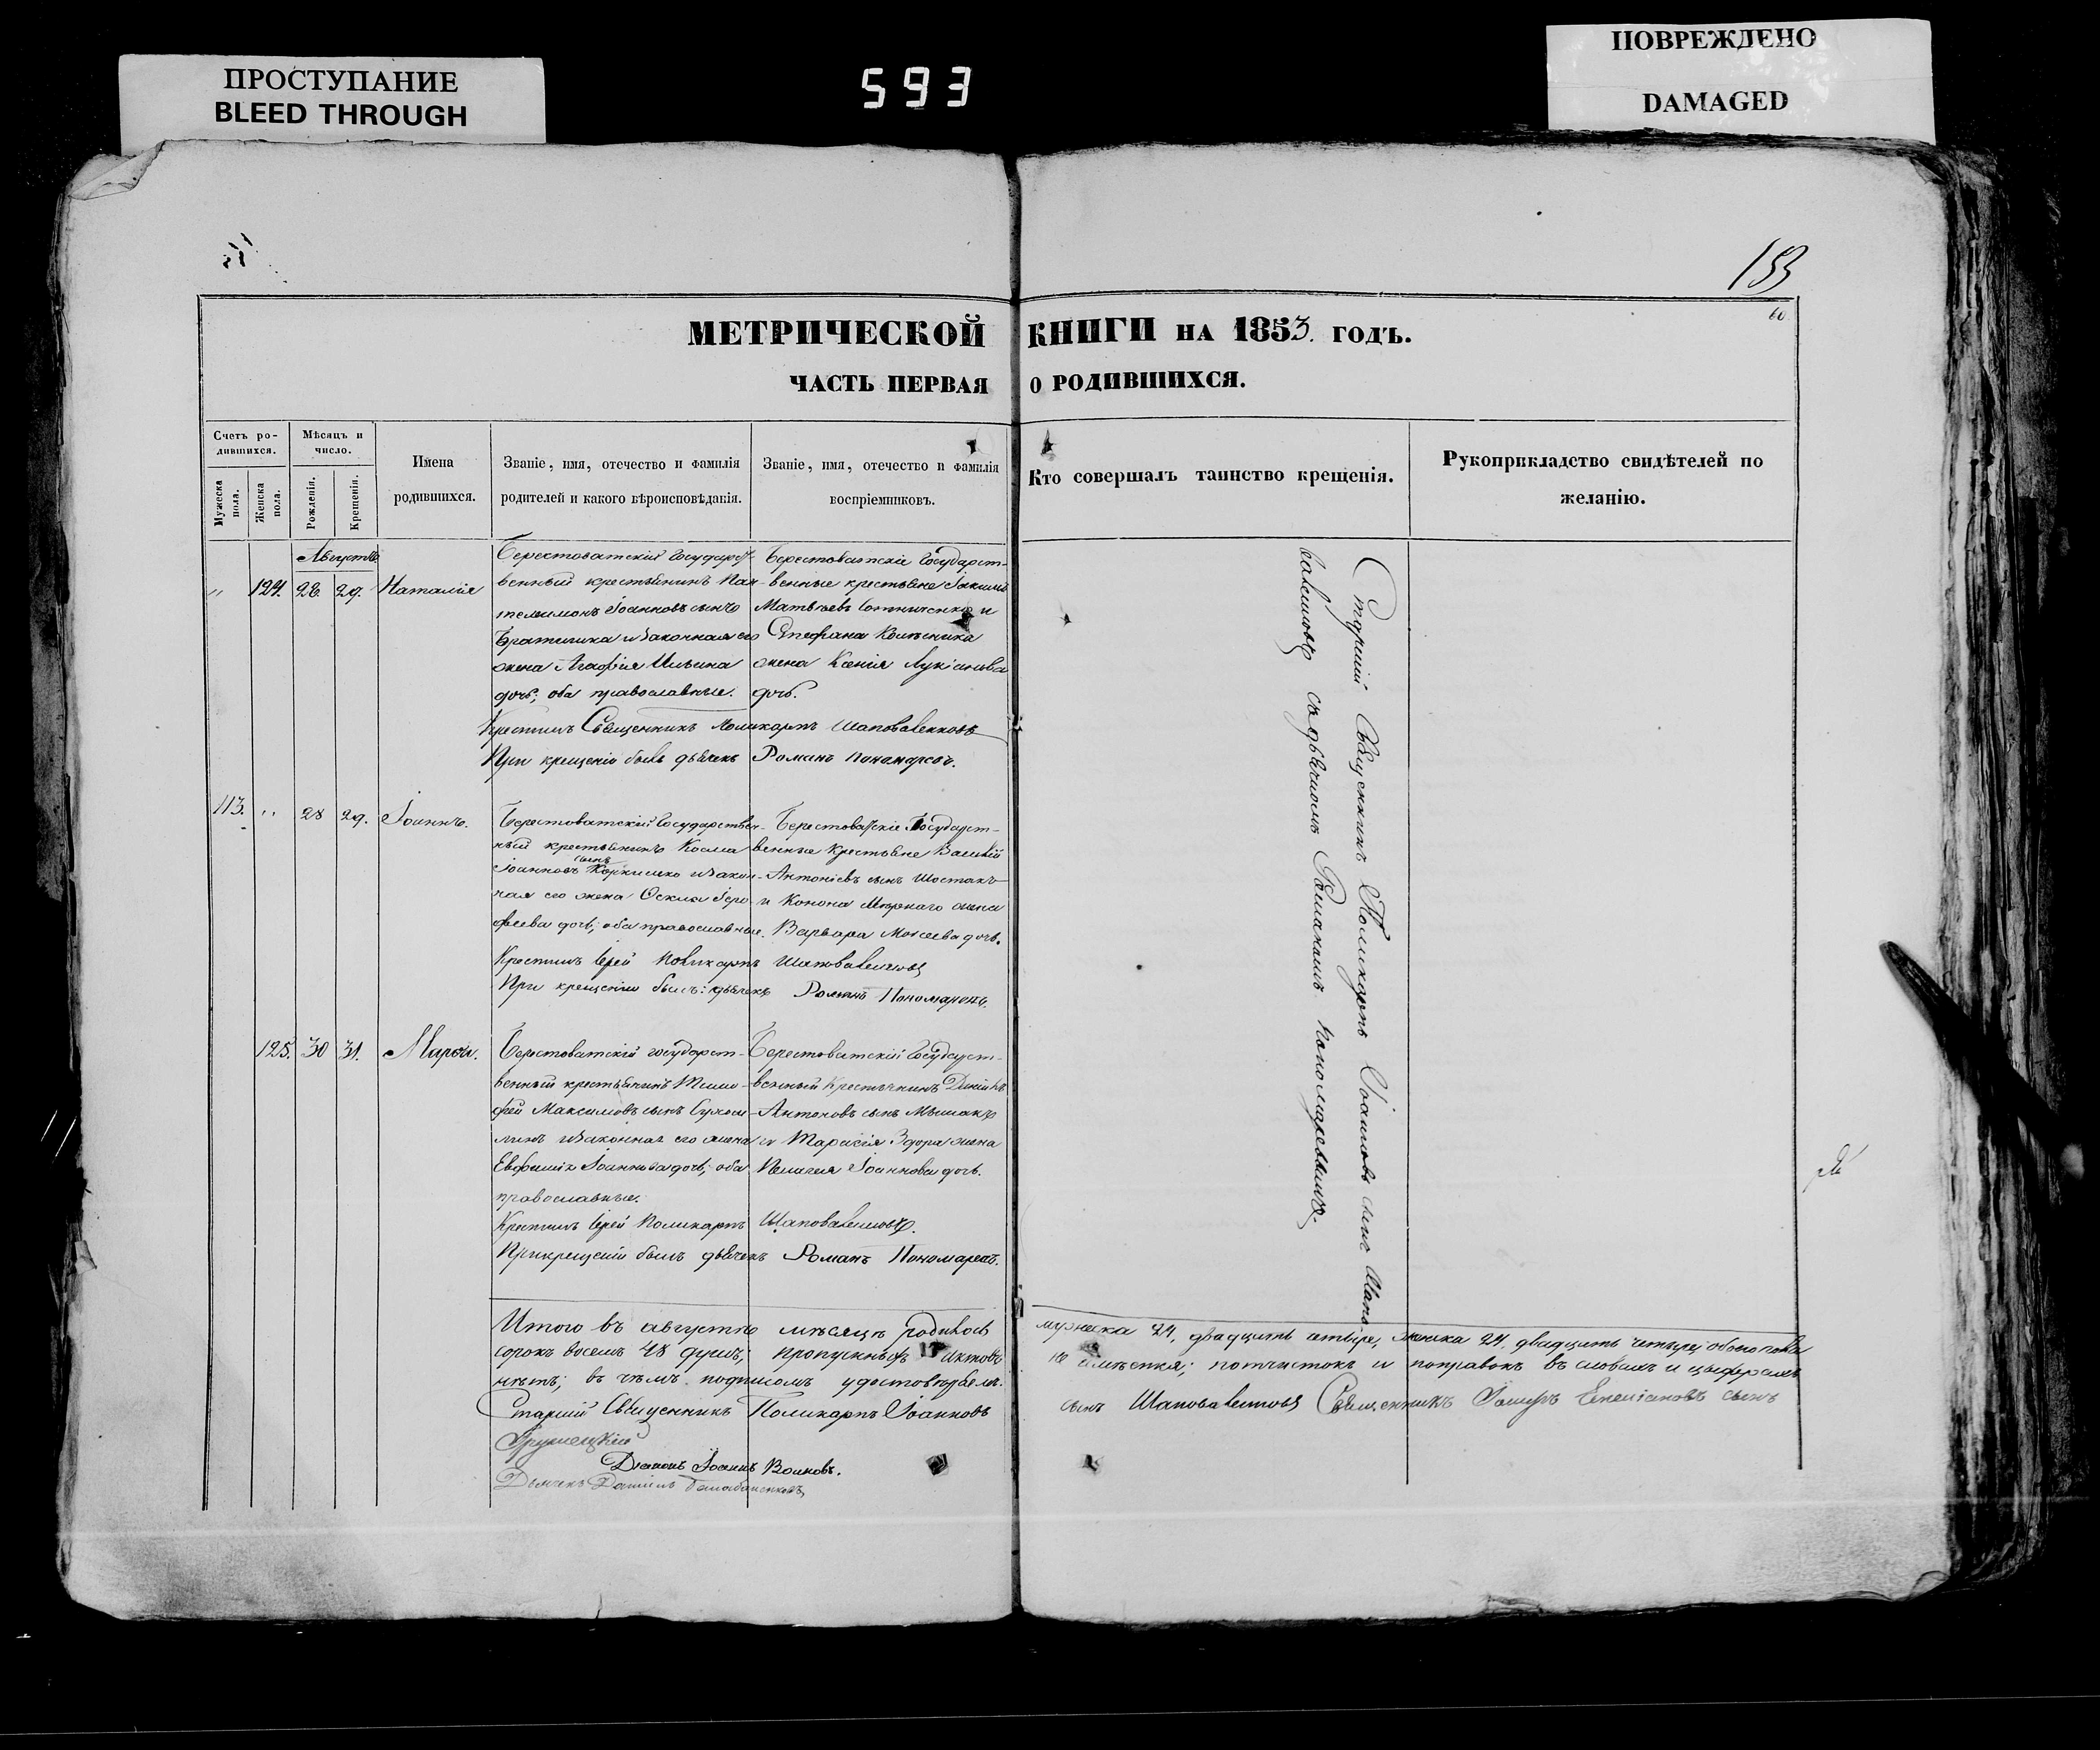 ПРОСТУПАНИЕ
BLEED THROUGH
593
ПОВРЕЖДЕНО
DAMAGED
153
60
МЕТРИЧЕСКОЙ КНИГИ НА 1853. ГОДЪ.
ЧАСТЬ ПЕРВАЯ О РОДИВШИХСЯ.
Счетъ ро-
дившихся.
Мужеска
пола.
Женска
пола.
Мѣсяцъ и
число.
Рожденія.
Крещенія.
Имена
родившихся.
Званіе, имя, отечество и фамилія
родителей и какого вѣроисповѣданія.
Званіе, имя, отечество и фамилія
воспріемниковъ.
Кто совершалъ таинство крещенія.
Рукоприкладство свидѣтелей по
желанію.
Августъ
" 124. 28. 29. Наталія
Берестоватскій Государст
венный крестьянинъ Пан
телимонъ Іоанновъ сынъ
и законная его
жена Агафія Ильина
дочь; оба православные.
Берестоватскіе Государст-
венные крестьяне Іакимъ
Матѳеевъ и
Стефана Колѣсника
жена Ксенія Лукіанова
дочь.
Крестилъ Священникъ Поликарпъ Шаповаленковъ
При крещеніи былъ дьячекъ Романъ Пономаревъ.
113. " 28 29. Іоаннъ.
Берестоватскій Государствен-
ный крестьянинъ Косма
Іоанновъ сынъ и закон-
ная его жена
феева дочь; оба православные.
Берестоватскіе Государст-
венные крестьяне Василій
Антоніевъ сынъ Шостакъ
и Конона жена
Варвара Моѵсеева дочь.
Крестилъ Іерей Поликарпъ Шаповаленковъ
При крещеніи былъ: дьячекъ Романъ Пономаревъ.
125. 30 31. Марѳа.
Берестоватскій государст-
венный крестьянинъ Тимо-
фей Максимовъ сынъ
и законная его жена
Евфимія Іоаннова дочь; оба
православные.
Берестоватскій Государст-
венный Крестьянинъ Даніилъ
Антоновъ сынъ
и Тарасія жена
Пелагея Іоаннова дочь.
Крестилъ Іерей Поликарпъ Шаповаленковъ.
При крещеніи былъ дьячекъ Романъ Пономаревъ.
Старшій Священникъ Поликарпъ Іоанновъ сынъ Шапо-
валенковъ съ дьячкомъ Романомъ Пономаревымъ.
Итого въ августѣ мѣсяцѣ родилось мужеска 24, двадцать четыре, женска 24, двадцать четыре; обоего пола
сорокъ восемь 48 душъ; пропускныхъ актовъ не имѣется; почистокъ и поправокъ въ словахъ и цыфрахъ
нѣтъ; въ чѣмъ подписомъ удостовѣряемъ.
Старшій Священникъ Поликарпъ Іоанновъ сынъ Шаповаленковъ Священникъ сынъ
Діаконъ Іоаннъ Волковъ.
Дьячекъ Даніилъ